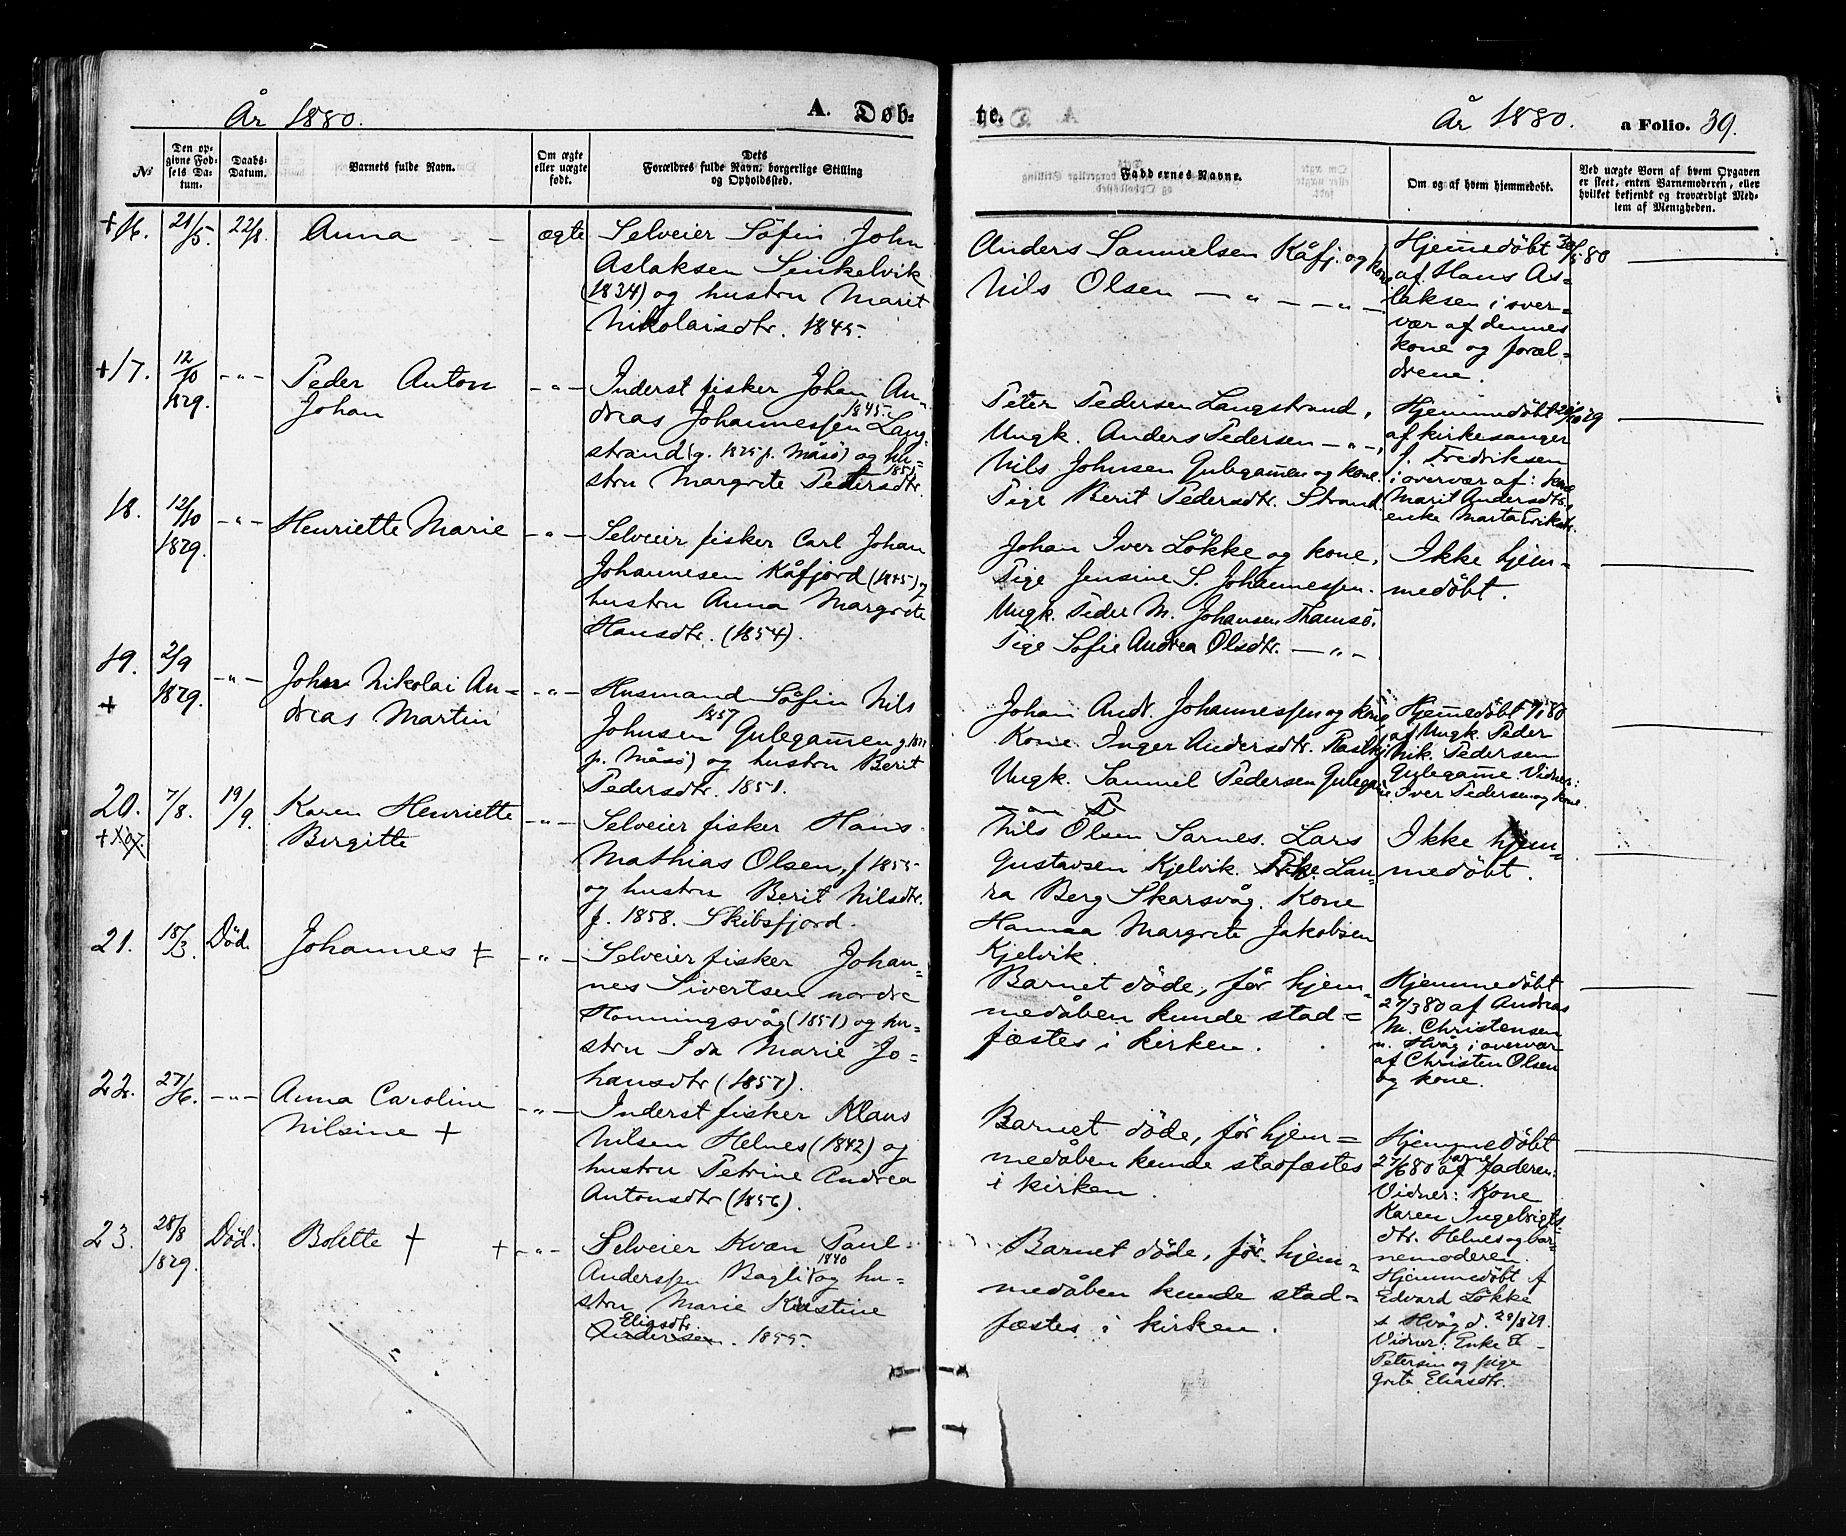 År 1880.
A. Døb-
№
Den op-
givne Fød-
sels Da-
tum.
Daabs-
Datum.
Barnets fulde Navn.
Om ægte
eller uægte
født.
Dets
Forældres fulde Navn, borgerlige Stilling
og Opholdssted.
+16.
21/5.
22/8.
Anna
ægte
Selveier Søfin John
Aslaksen Sinkelvik
(1834) og hustru Marit
Nikolaisdtr. 1845.
+17.
12/10
1879.
-"-
Peder Anton
Johan
-"-
Inderst fisker Johan An-
dreas Johannessen 1845. Lang-
strand (g. 1875 p. Måsø) og hu-
stru Margrete Pedersdtr. 1851
18.
12/10
1879.
-"-
Henriette Marie
-"-
Selveier fisker Carl Johan
Johannesen Kåfjord (1845) og
hustru Anna Margrete
Hansdtr. (1854).
19.
+
2/9
1879.
-"-
John Nikolai An-
dreas Martin
-"-
Husmand Søfin Nils
Johnsen 1857 Gulegamen g. 1877
p. Måsø) og hustru Berit
Pedersdtr. 1851.
20.
7/8.
19/9.
Karen Henriette
Birgitte
-"-
Selveier fisker Hans
Mathias Olsen, f 1855
og hustru Berit Nilsdtr.
f. 1858. Skibsfjord.
21.
18/3.
Död.
Johannes +
-"-
Selveier fisker Johan-
nes Sivertsen nordre
Honningsvåg (1851) og hu-
stru Ida Marie Jo-
hansdtr (1857).
22.
27/6.
-"-
Anna Caroline
Nilsine +
-"-
Inderst fisker Klaus
Nilsen Helnes (1842) og
hustru Petrine Andrea
Antonsdtr (1856).
23.
28/8
1879.
Död.
Bolette +
+ -"-
Selveier Kvæn Paul
Anderssen Baglid 1840 og hu-
stru Marie Kristine
Eliasdtr.
Andersen. 1855.
te.
År 1880.
a Folio. 39.
Faddernes Navne.
Om og af hvem hjemmedøbt.
Ved uægte Børn af hvem Opgaven
er skeet, enten Barnemoderen, eller
hvilket bekjendt og troværdigt Med-
lem af Menigheden.
Anders Samuelsen Kåfj. og kone
Nils Olsen -"- -"-
Hjemmedøbt 30/5 80
af Hans As-
laksen i over-
vær af dennes
kone og foræl-
drene.
Peter Pedersen Langstrand,
Ungk. Anders Pedersen -"-,
Nils Johnsen Gulegamen og kone.
Pige Berit Pedersdtr. Strand.
Hjemmedøbt 79
af kirkesanger
J. Fredriksen
i overvær af: kone
Marit Andersdtr.,
enke Marta Eriksdtr.
Johan Iver Løkke og kone.
Pige Jensine S. Johannessen.
Ungk. Peder M. Johansen Thamsø.
Pige Sofie Andrea Olsdtr. -"-
Ikke hjem-
medøbt.
Johan Andr. Johannessen og kone
Kone Inger Andersdtr.
Ungk. Samuel Pedersen Gulegamen
Hjemmedøbt 80
af Ungk. Peder
Nik. Pedersen
Gulegamme Vidner:
Iver Pedersen og kone.
Nils Olsen Sarnes. Lars
Gustavsen Kjelvik. Lau-
ra Berg Skarsvåg. Kone
Hanna Margrete Jakobsen
Kjelvik.
Ikke hjem-
medøbt.
Barnet døde, før hjem-
medåben kunde stad-
fæstes i kirken.
Hjemmedøbt
27/3 80 af Andreas
M. Christensen
n. Hvåg i overvær
af Christen Olsen
og kone.
Barnet døde, før hjem-
medåben kunde stadfæstes
i kirken.
Hjemmedøbt
27/6 80 af barnefaderen:
Vidner: Kone
Karen Ingebrigts-
dtr. Helnes og bar-
nemoderen.
Barnet døde, før hjem-
medåben kunde stad-
fæstes i kirken.
Hjemmedøbt af
Edvard Løkke
s Hvåg d. 29/8 79.
Vidner: Enke E
Petersen og pige
Grete Eliasdtr.